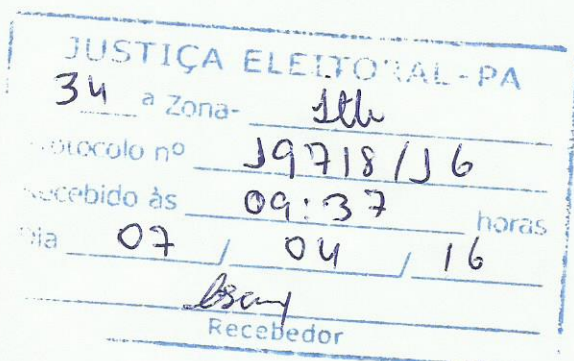 JUSTIÇA ELEITORAL-PA
34 a Zona-
Protocolo nº 19718/16
Recebido às 09:37 horas
Dia 07 / 04 / 16
Recebedor